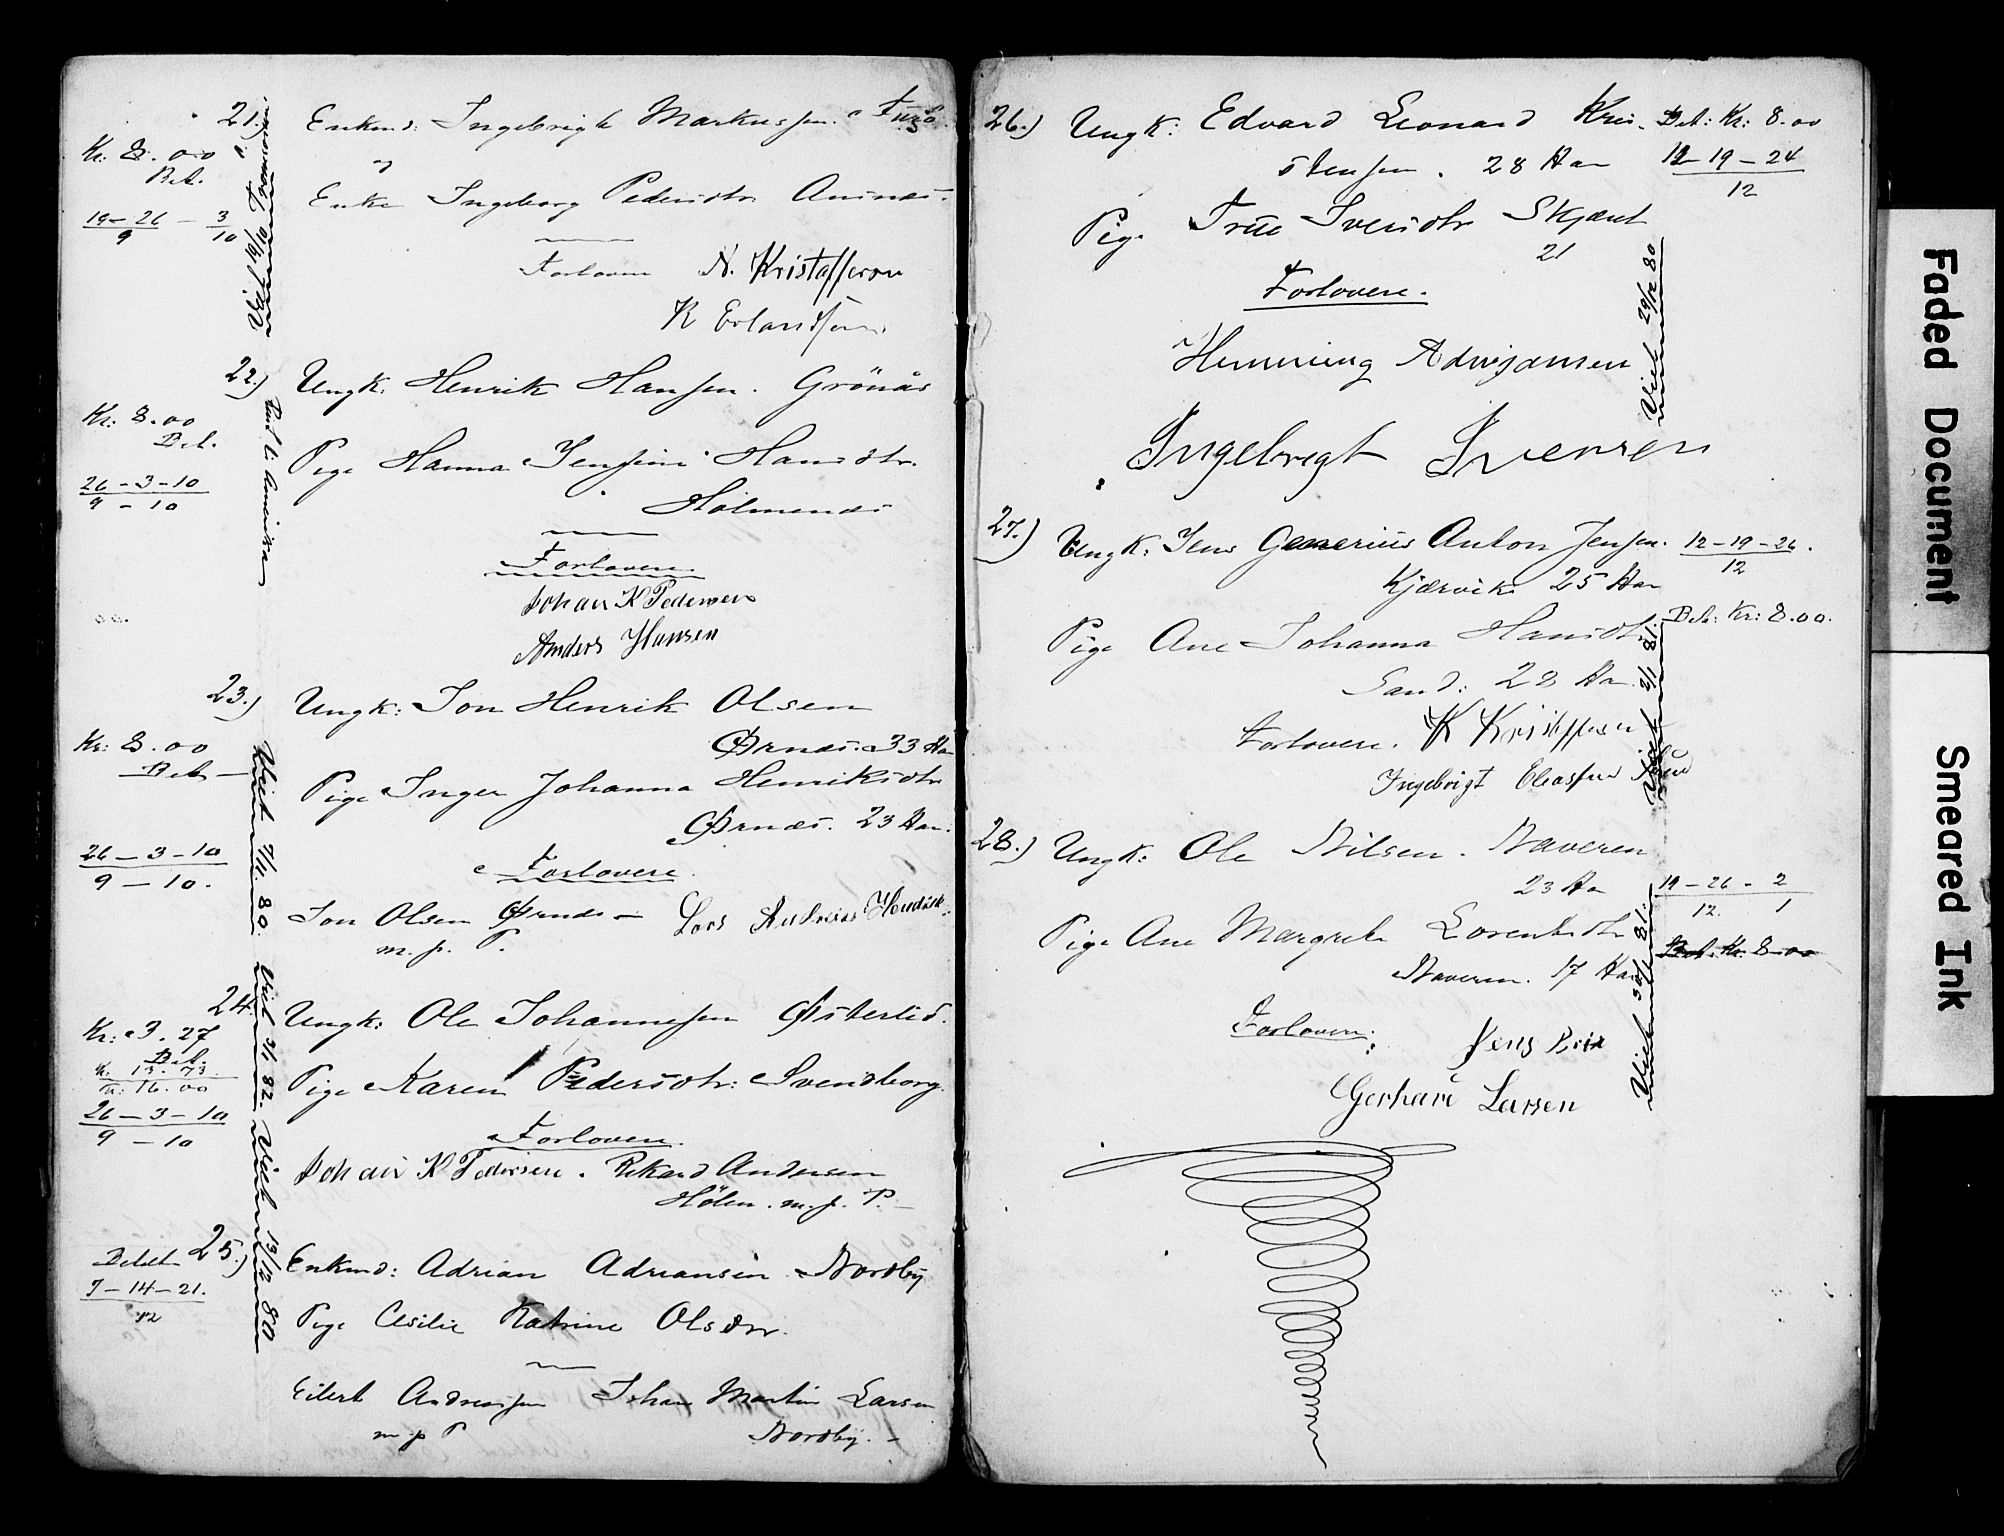 21.) Enkmd: Ingebrigt Markussen Furö
Kr. 8.00
Bet.
og
Enke Ingeborg Pedersdtr
19-26 - 3
9 10
Forlovere N. Kristofferson
K Erlandsen
22.) Ungk. Henrik Hansen. Grönås
Kr: 8.00
Bet.
Pige Hanna Jensine Hansdtr.
Holmenæs
26-3-10
9-10
Forlovere.
Johan K Pedersen
Anders Hansen
23.) Ungk: Jon Henrik Olsen
Ørnæs. 33 Aar
Kr: 8.00
Bet
Pige Inger Johanna Henriksdtr
Ørnæs. 23 Aar.
26-3-10
9-10.
Forlovere
Jon Olsen Ørnæs Lars Andreas
m. p. P.
Viet 80.
24. Ungk: Ole Johannessen Østerlid.
Kr: 3.27
Bet.
K. 13.73
Kr. 16.00
Pige Karen Pedersdtr: Svendborg.
26-3-10
9-10
Forlovere.
Johan K Pedersen. Rikard Andersen
Hölen. m. p. P.
Viet 82.
25.) Enkmd: Adrian Adriansen Nordby
Betalt
7-14-21.
12
Pige Cesilie Katrine Olsdtr.
Eilert Andreassen Johan Martin Larsen
m p P Nordby.
Viet 13/12 80
26.) Ungk: Edvard Leonard Kris-
stensen. 28 Aar
Bet: Kr: 8.00
12-19-24
12
Pige Sivertsdtr
21
Forlovere.
Henning Adrijansen
Viet 29/12 80
Ingebrigt Iversen
27.) Ungk: Jens Generius Anton Jensen.
Kjærvik 25 Aar
12-19-26.
12
Bet: Kr: 8.00.
Pige Ane Johanna Hansdtr
Sand: 28 Aar
Forlovere. K Kristoffersen
Ingebrigt Eliassen
Viet 2/1 81.
28.) Ungk: Ole Nilsen. Naveren
23 Aar
19-26-2
12. 1
Bet. Kr. 8.00
Pige Ane Margrete Lorentsdtr
Naveren. 17 Aar
Forlovere: Jens Brix
Gerhard Larsen
Viet 81.
Faded Document
Smeared Ink